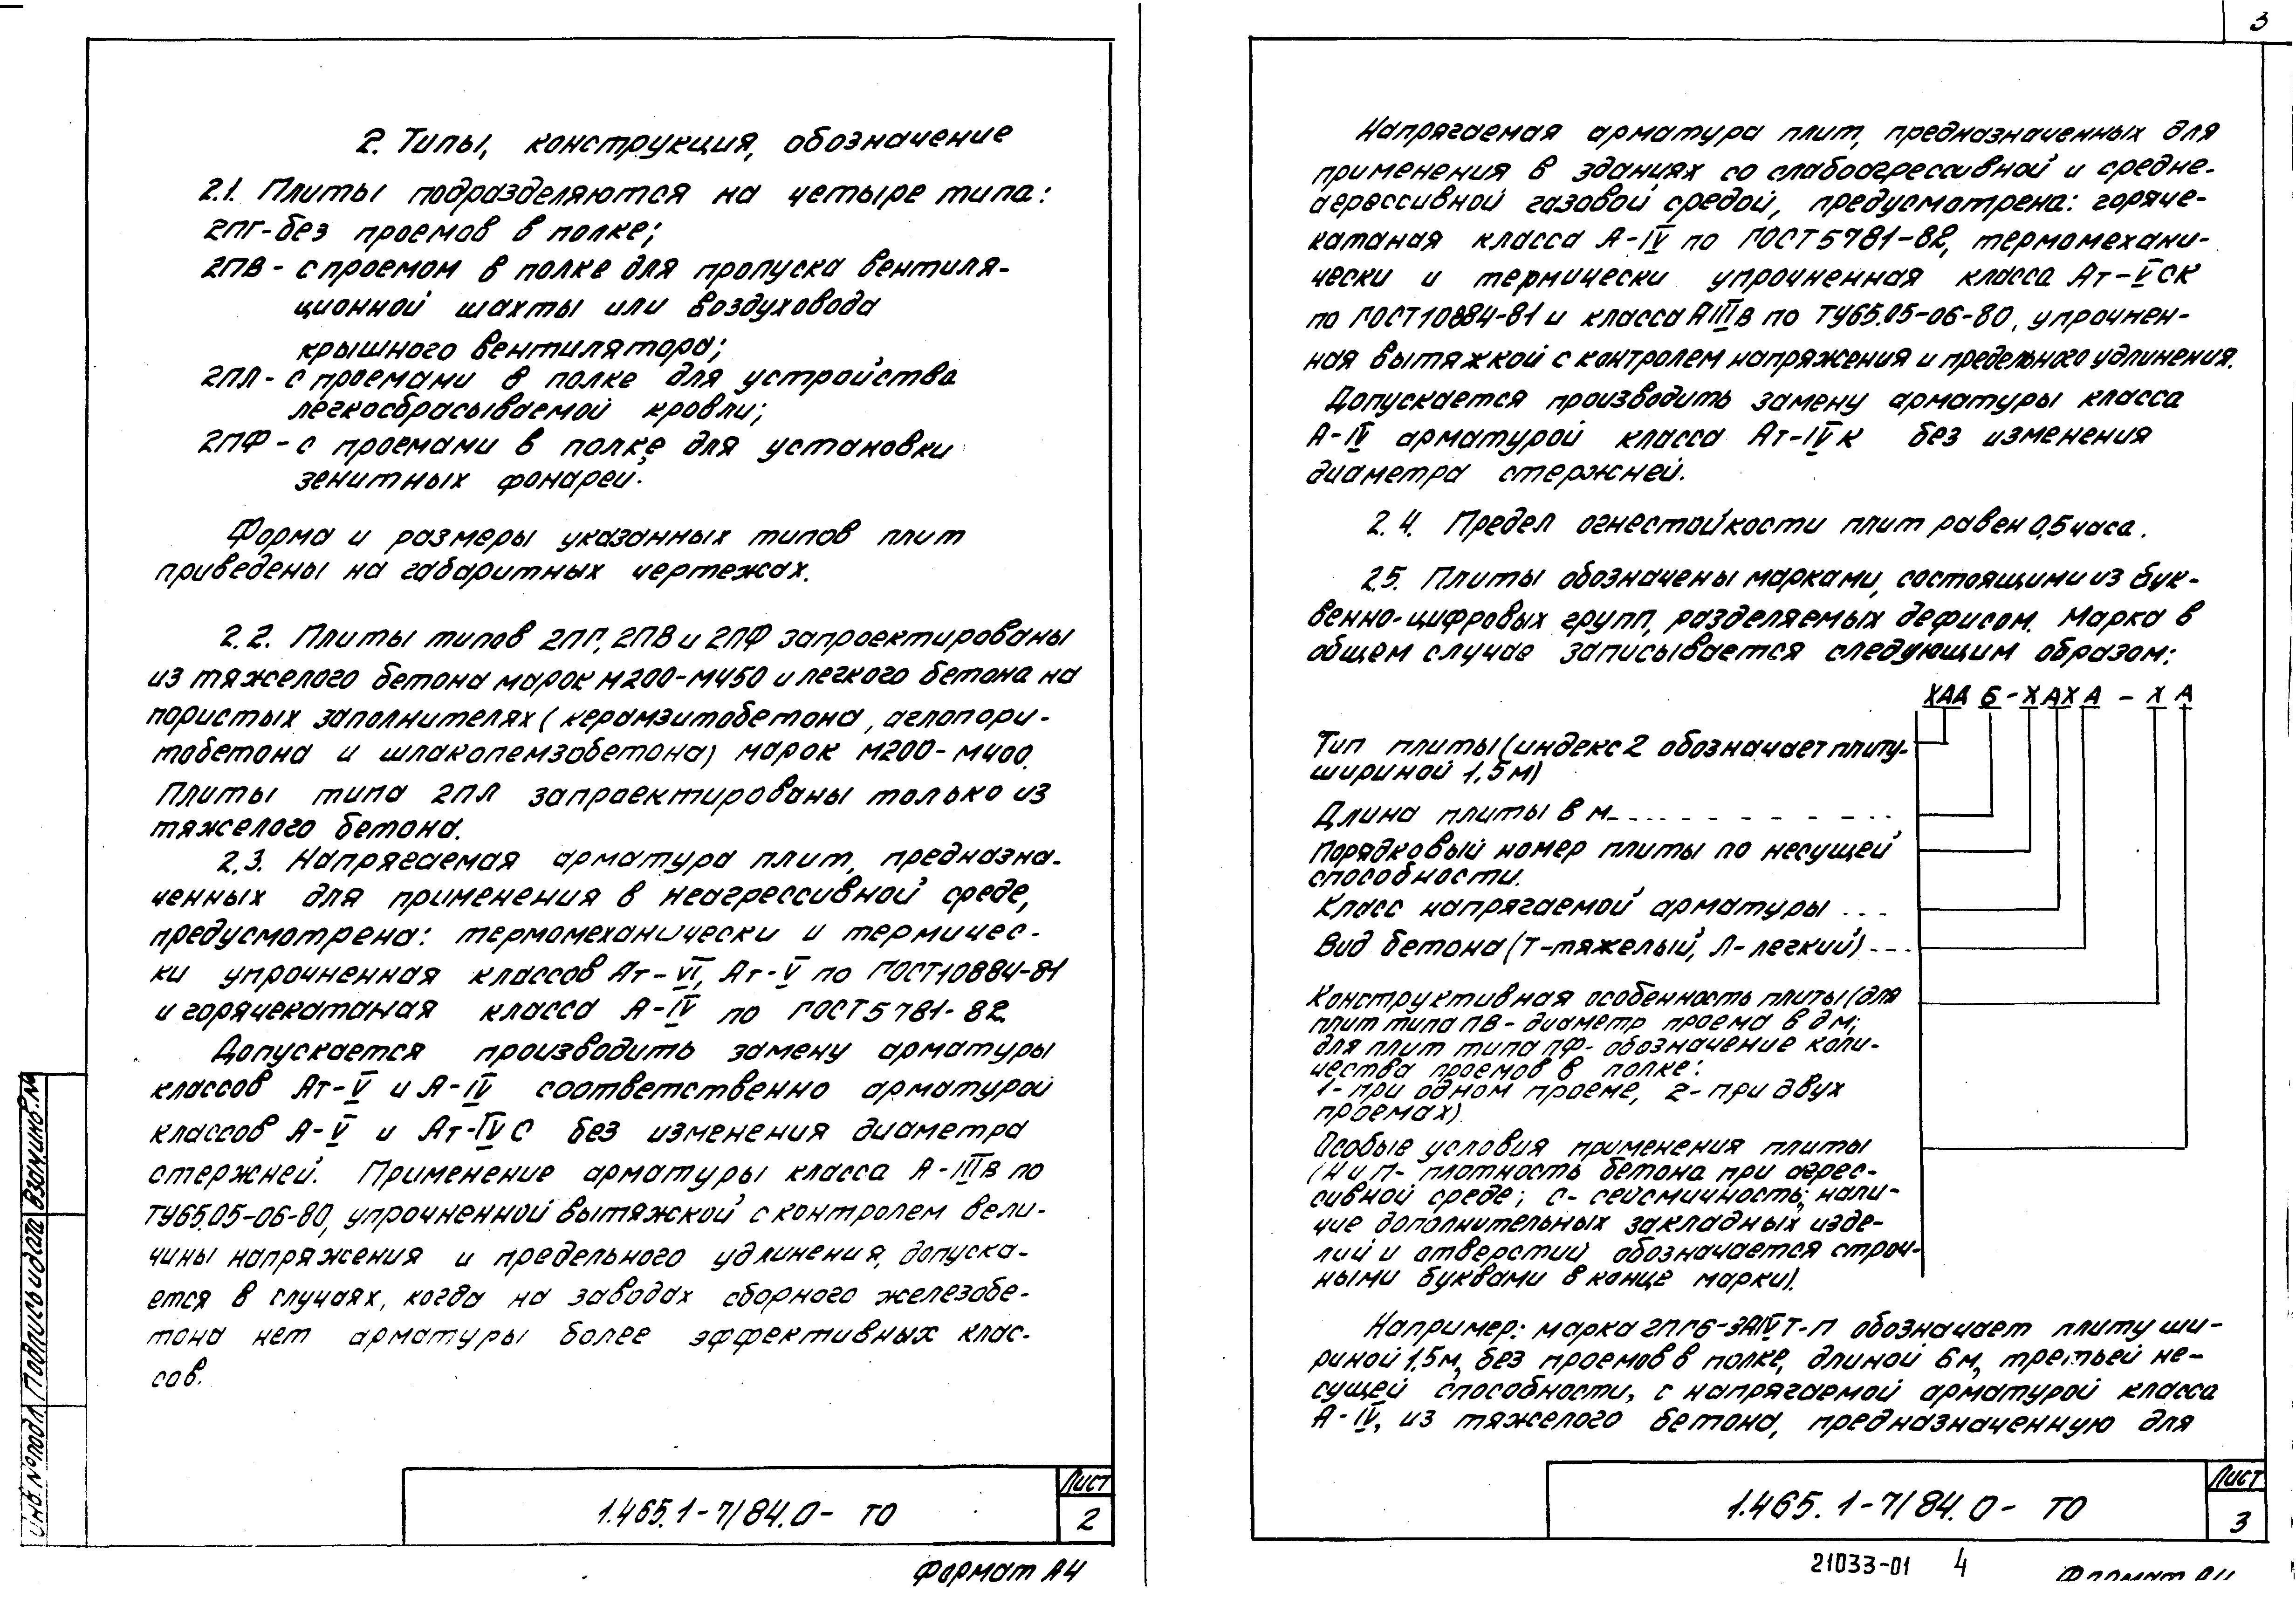 2. Типы, конструкция, обозначение
2.1. Плиты подразделяются на четыре типа:
2ПГ-без проемов в полке;
2ПВ - с проемом в полке для пропуска вентиля-
ционной шахты или воздуховода
крышного вентилятора;
2ПЛ - с проемами в полке для устройства
легкосбрасываемой кровли;
2ПФ - с проемами в полке для установки
зенитных фонарей.
Форма и размеры указанных типов плит
приведены на габаритных чертежах.
2.2. Плиты типов 2ПГ, 2ПВ и 2ПФ запроектированы
из тяжелого бетона марок М200-М450 и легкого бетона на
пористых заполнителях (керамзитобетона, аглопори-
тобетона и шлакопемзобетона) марок М200-М400.
Плиты типа 2ПЛ запроектированы только из
тяжелого бетона.
2.3. Напрягаемая арматура плит, предназна-
ченных для применения в неагрессивной среде,
предусмотрена: термомеханически и термичес-
ки упрочненная классов Ат-VI, Ат-V по ГОСТ10884-81
и горячекатаная класса А-IV по ГОСТ5781-82.
Допускается производить замену арматуры
классов Ат-V и А-IV соответственно арматурой
классов А-V и Ат-IVС без изменения диаметра
стержней. Применение арматуры класса А-IIIв по
ТУ65.05-06-80, упрочненной вытяжкой с контролем вели-
чины напряжения и предельного удлинения, допуска-
ется в случаях, когда на заводах сборного железобе-
тона нет арматуры более эффективных клас-
сов.
1.465.1-7/84.0- ТО
Лист
2
Формат А4
Инв.№подл. Подпись и дата Взам.инв.№
3
Напрягаемая арматура плит, предназначенных для
применения в зданиях со слабоагрессивной и средне-
агрессивной газовой средой, предусмотрена: горяче-
катаная класса А-IV по ГОСТ5781-82, термомехани-
чески и термически упрочненная класса Ат-VСК
по ГОСТ10884-81 и класса АIIIв по ТУ65.05-06-80, упрочнен-
ная вытяжкой с контролем напряжения и предельного удлинения.
Допускается производить замену арматуры класса
А-IV арматурой класса Ат-IVК без изменения
диаметра стержней.
2.4. Предел огнестойкости плит равен 0,5 часа.
2.5. Плиты обозначены марками, состоящими из бук-
венно-цифровых групп, разделяемых дефисом. Марка в
общем случае записывается следующим образом:
ХАА 6 - ХАХА - Х А
Тип плиты (индекс 2 обозначает плиту
шириной 1,5м)
Длина плиты в м
Порядковый номер плиты по несущей
способности.
Класс напрягаемой арматуры ...
Вид бетона (Т-тяжелый, Л-легкий)
Конструктивная особенность плиты (для
плит типа ПВ - диаметр проема в дм;
для плит типа ПФ- обозначение коли-
чества проемов в полке:
1- при одном проеме, 2- при двух
проемах).
Особые условия применения плиты
(Н и П- плотность бетона при агрес-
сивной среде; С- сейсмичность; нали-
чие дополнительных закладных изде-
лий и отверстий обозначается строч-
ными буквами в конце марки).
Например: марка 2ПГ6-3АIVТ-П обозначает плиту ши-
риной 1,5м, без проемов в полке, длиной 6м, третьей не-
сущей способности, с напрягаемой арматурой класса
А-IV, из тяжелого бетона, предназначенную для
1.465.1-7/84.0- ТО
Лист
3
21033-01 4
Формат